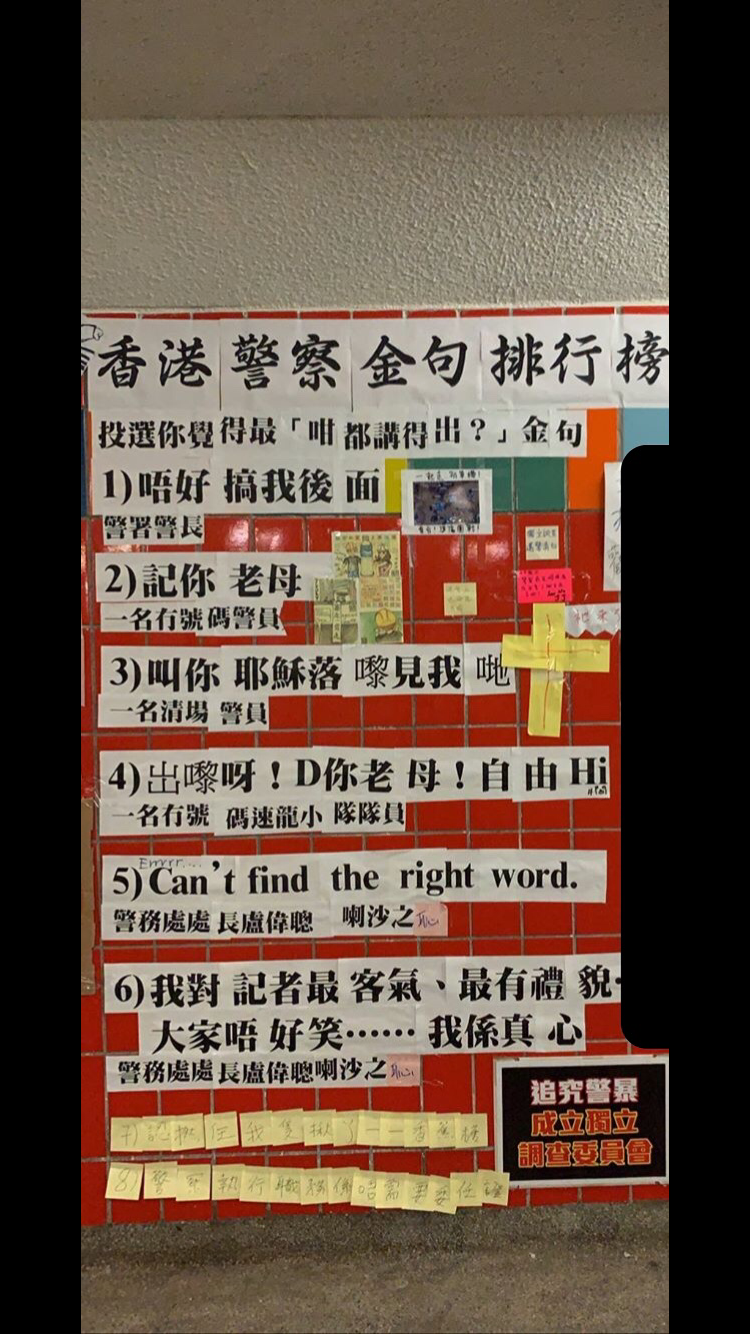 香港警察金句排行榜
投選你覺得最「咁都講得出？」金句
1)唔好搞我後面
警署警長
2)記你老母
一名冇號碼警員
3)叫你耶穌落嚟見我哋
一名清場警員
4)出嚟呀！D你老母！自由Hi
一名冇號碼速龍小隊隊員
Errrr....
5)Can't find the right word.
警務處處長盧偉聰 喇沙之恥
6)我對記者最客氣、最有禮貌
大家唔好笑…… 我係真心
警務處處長盧偉聰喇沙之恥
追究警暴
成立獨立
調查委員會
8)警察執行職務係唔需要委任證